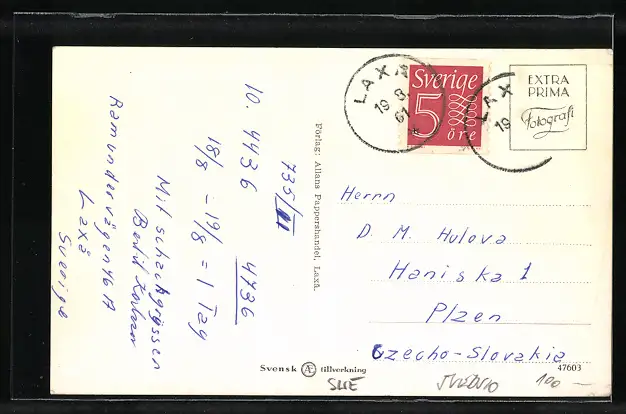 LAXÅ
19 8.
61
Sverige
5
öre
LAX
19
EXTRA
PRIMA
Fotografi
735/
10. 4436 4736
18/8 – 19/8 = 1 Tag
Mit schachgrüssen
Bertil
Ramundervägen 46 A
Laxå
Sverige
Förlag: Allans Pappershandel, Laxå.
Herrn
D. M. Hulova
Haniska 1
Plzen
Czecho-Slovakia
Svensk Æ tillverkning
47603
SUE
100 –